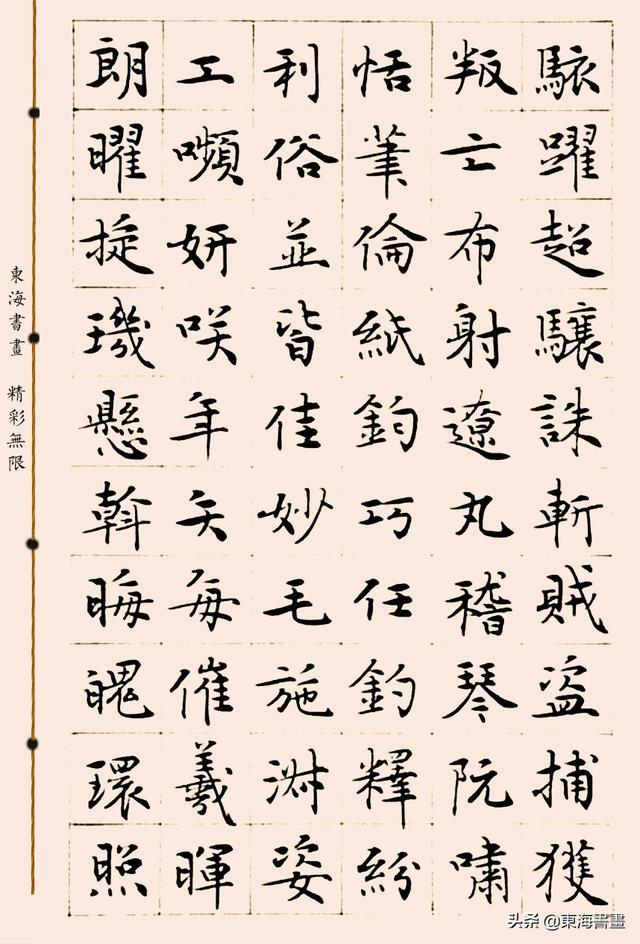 駭躍超驤誅斬賊盜捕獲
叛亡布射遼丸嵇琴阮嘯
恬筆倫紙鈞巧任釣釋紛
利俗並皆佳妙毛施淑姿
工嚬妍咲年矢每催羲暉
朗曜旋璣懸斡晦魄環照
東海書畫 精彩無限
头条 @東海書畫